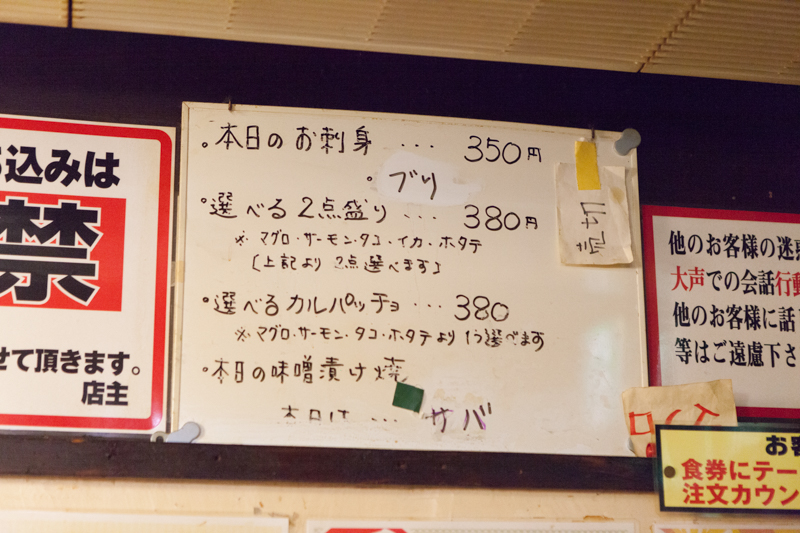 込みは
禁
せて頂きます。
店主
・本日のお刺身 ... 350円
・ブリ
・選べる2点盛り ... 380円
※マグロ・サーモン・タコ・イカ・ホタテ
〔上記より2点選べます〕
・選べるカルパッチョ ... 380
※マグロ・サーモン・タコ・ホタテより1つ選べます
・本日の味噌漬け焼
本日は ... サバ
売切
他のお客様の迷惑
大声での会話行動
他のお客様に話
等はご遠慮下さ
お客
食券にテー
注文カウン